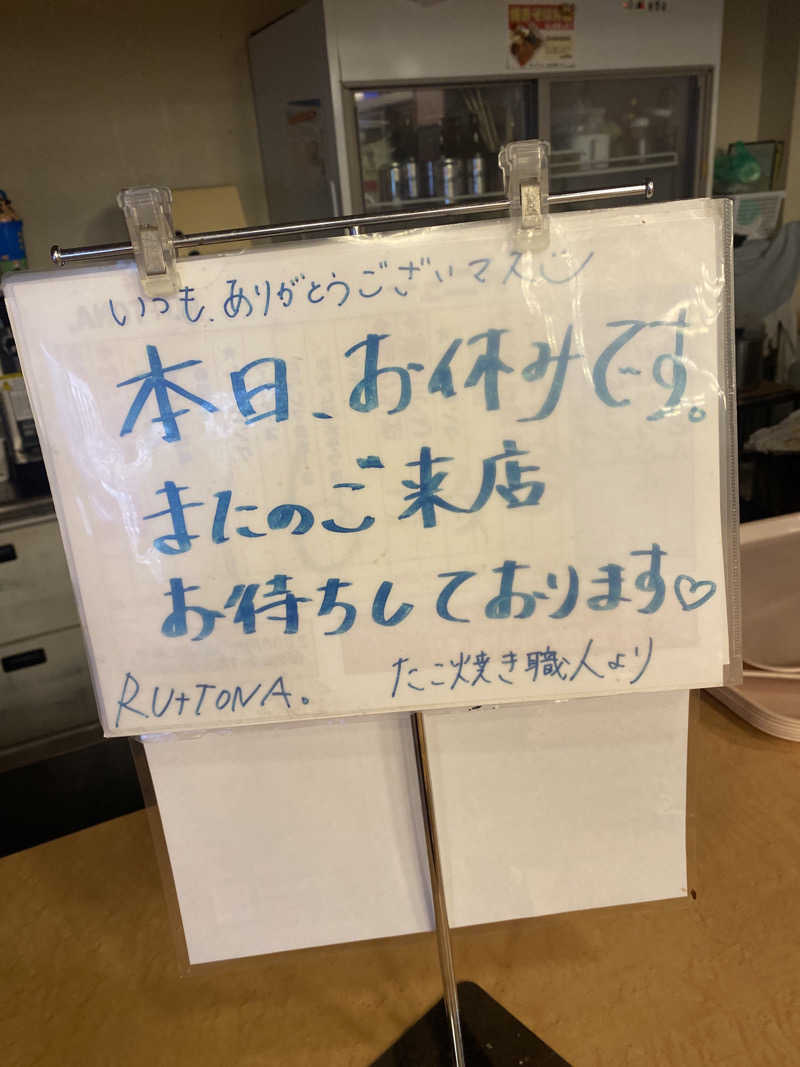 いつも、ありがとうございマス
本日、お休みです。
またのご来店
お待ちしております♡
RU+TONA。 たこ焼き職人より